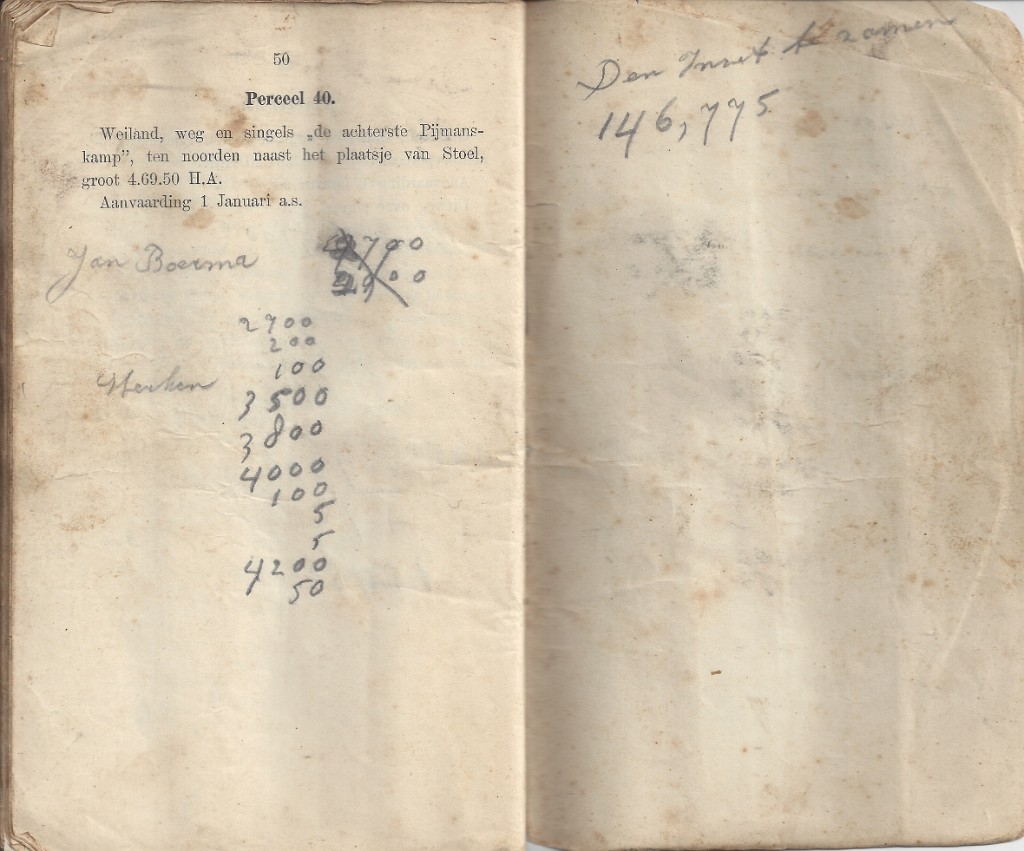 50
Perceel 40.
Weiland, weg en singels „de achterste Pijmans-
kamp”, ten noorden naast het plaatsje van Stoel,
groot 4.69.50 H.A.
Aanvaarding 1 Januari a.s.
Jan Boerma
2700
200
100
3500
3800
4000
100
5
5
4200
50
Den Inzet te zamen
146,775